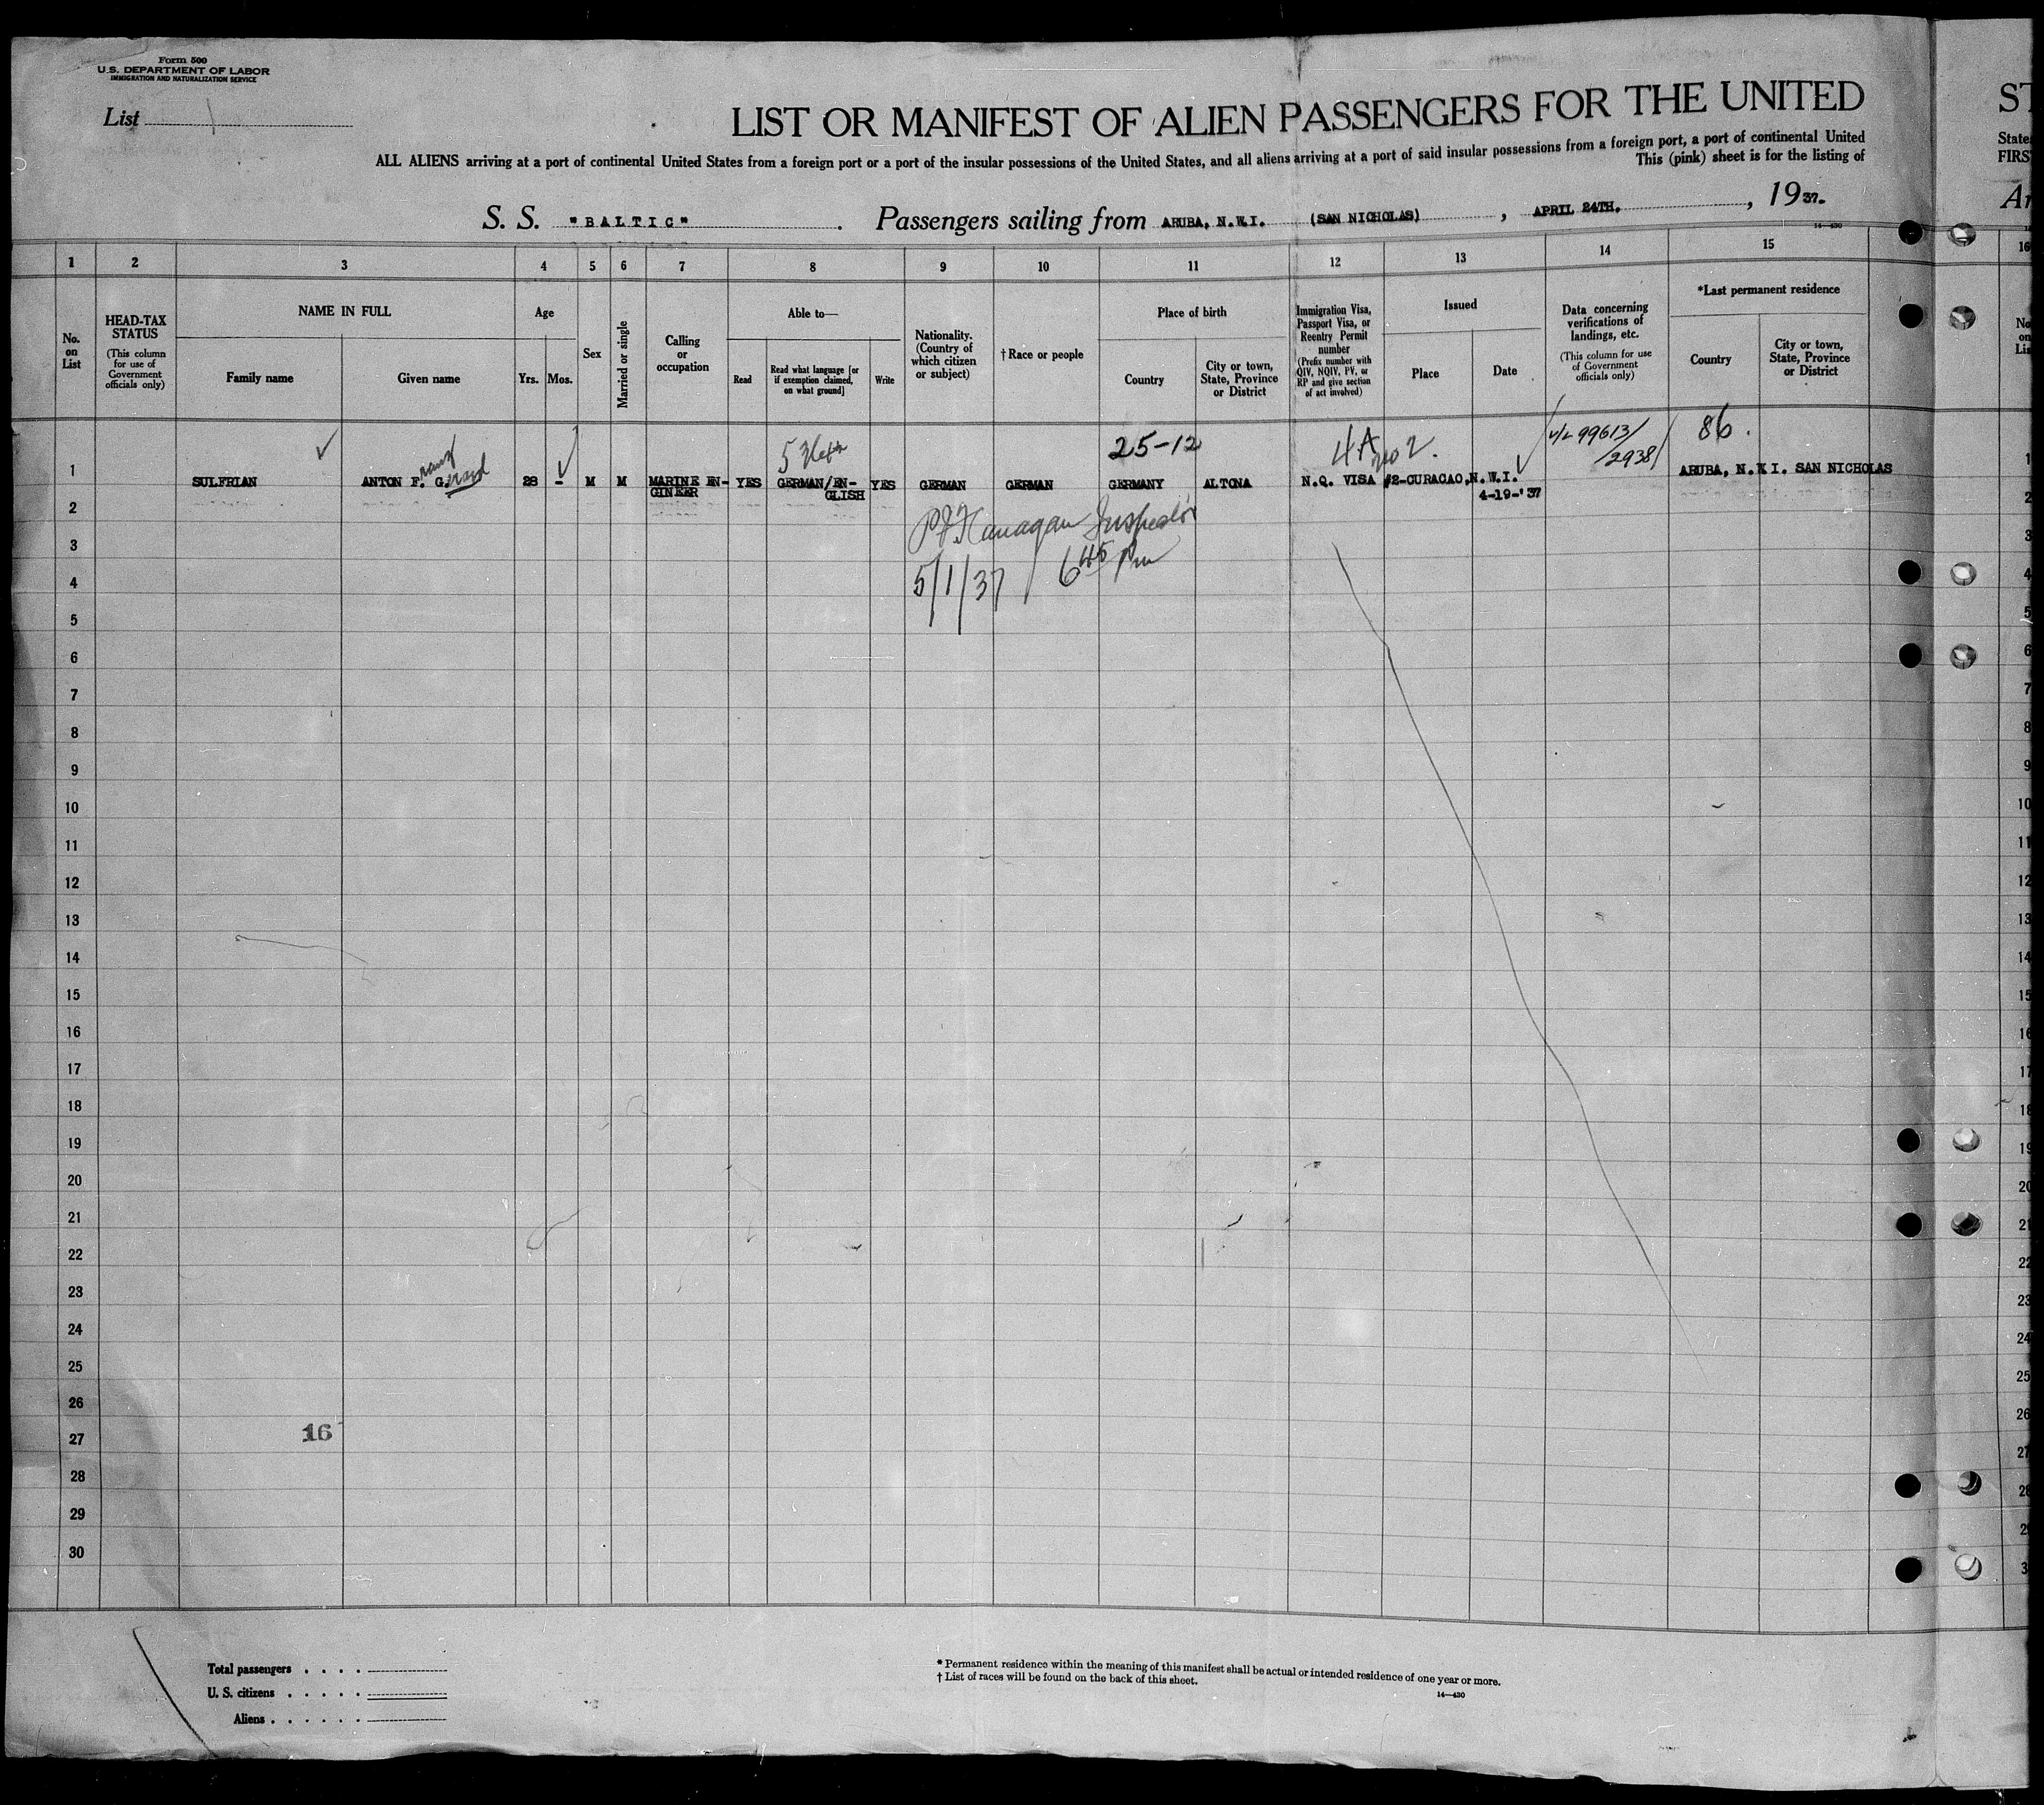 Form 500
U.S. DEPARTMENT OF LABOR
IMMIGRATION AND NATURALIZATION SERVICE
List 1
LIST OR MANIFEST OF ALIEN PASSENGERS FOR THE UNITED ST
ALL ALIENS arriving at a port of continental United States from a foreign port or a port of the insular possessions of the United States, and all aliens arriving at a port of said insular possessions from a foreign port, a port of continental United State
This (pink) sheet is for the listing of FIRS
S. S. "BALTIC". Passengers sailing from ARUBA, N.W.I. (SAN NICHOLAS), APRIL 24TH., 1937. Ar
14—430
1 2 3 4 5 6 7 8 9 10 11 12 13 14 15 16
No. on List
HEAD-TAX STATUS
(This column for use of Government officials only)
NAME IN FULL
Family name
Given name
Age
Yrs. Mos.
Sex
Married or single
Calling or occupation
Able to—
Read
Read what language [or if exemption claimed, on what ground]
Write
Nationality. (Country of which citizen or subject)
†Race or people
Place of birth
Country
City or town, State, Province or District
Immigration Visa, Passport Visa, or Reentry Permit number
(Prefix number with QIV, NQIV, PV, or RP and give section of act involved)
Issued
Place
Date
Data concerning verifications of landings, etc.
(This column for use of Government officials only)
*Last permanent residence
Country
City or town, State, Province or District
No on Lis
25-12
86.
V/L 99613/
2938
1 SULFRIAN ANTON F. G. 28 - M M MARINE EN- YES GERMAN/EN- YES GERMAN GERMAN GERMANY ALTONA N.Q. VISA #2-CURACAO,N.W.I. ARUBA, N.W I. SAN NICHOLAS 1
GINEER GLISH 4-19-'37
2 2
Inspector
3 3
5/1/37 6 45 Pm
4 4
5 5
6 6
7 7
8 8
9 9
10 10
11 11
12 12
13 13
14 14
15 15
16 16
17 17
18 18
19 19
20 20
21 21
22 22
23 23
24 24
25 25
26 26
16
27 27
28 28
29 29
30 3
Total passengers . . . .
U. S. citizens . . . . .
Aliens . . . . . .
* Permanent residence within the meaning of this manifest shall be actual or intended residence of one year or more.
† List of races will be found on the back of this sheet.
14—430